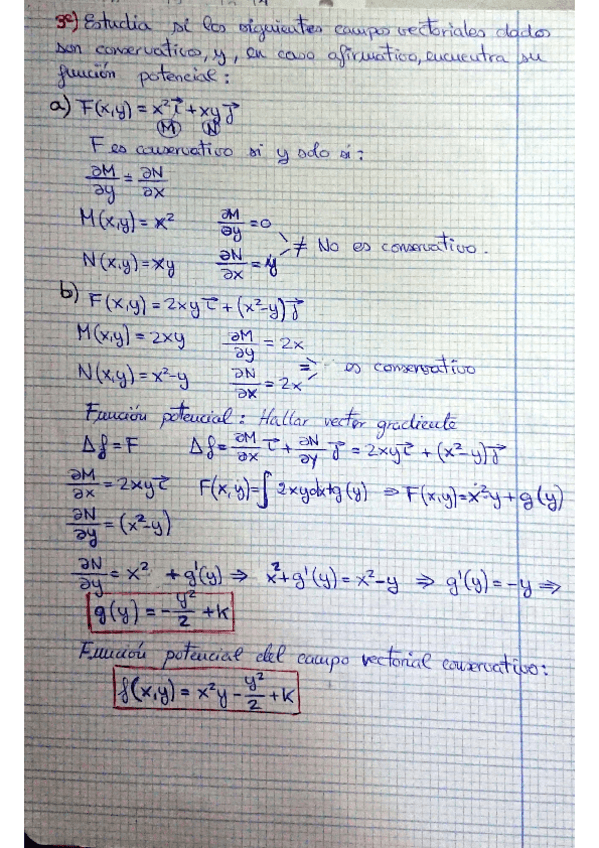 3º) Estudia si los siguientes campos vectoriales dados
son conservativos, y, en caso afirmativo, encuentra su
función potencial:
a) F(x,y) = x² i⃗ + xy j⃗
(M) (N)
F es conservativo si y solo si:
∂M/∂y = ∂N/∂x
M(x,y) = x² ∂M/∂y = 0
≠ No es conservativo.
N(x,y) = xy ∂N/∂x = y
b) F(x,y) = 2xy i⃗ + (x²-y) j⃗
M(x,y) = 2xy ∂M/∂y = 2x
= es conservativo
N(x,y) = x²-y ∂N/∂x = 2x
Función potencial: Hallar vector gradiente
Δf = F Δf = ∂M/∂x i⃗ + ∂N/∂y j⃗ = 2xy i⃗ + (x²-y) j⃗
∂M/∂x = 2xy i⃗ F(x,y) = ∫ 2xydx + g(y) ⇒ F(x,y) = x²y + g(y)
∂N/∂y = (x²-y)
∂N/∂y = x² + g'(y) ⇒ x² + g'(y) = x²-y ⇒ g'(y) = -y ⇒
g(y) = -y²/2 + k
Función potencial del campo vectorial conservativo:
f(x,y) = x²y - y²/2 + k